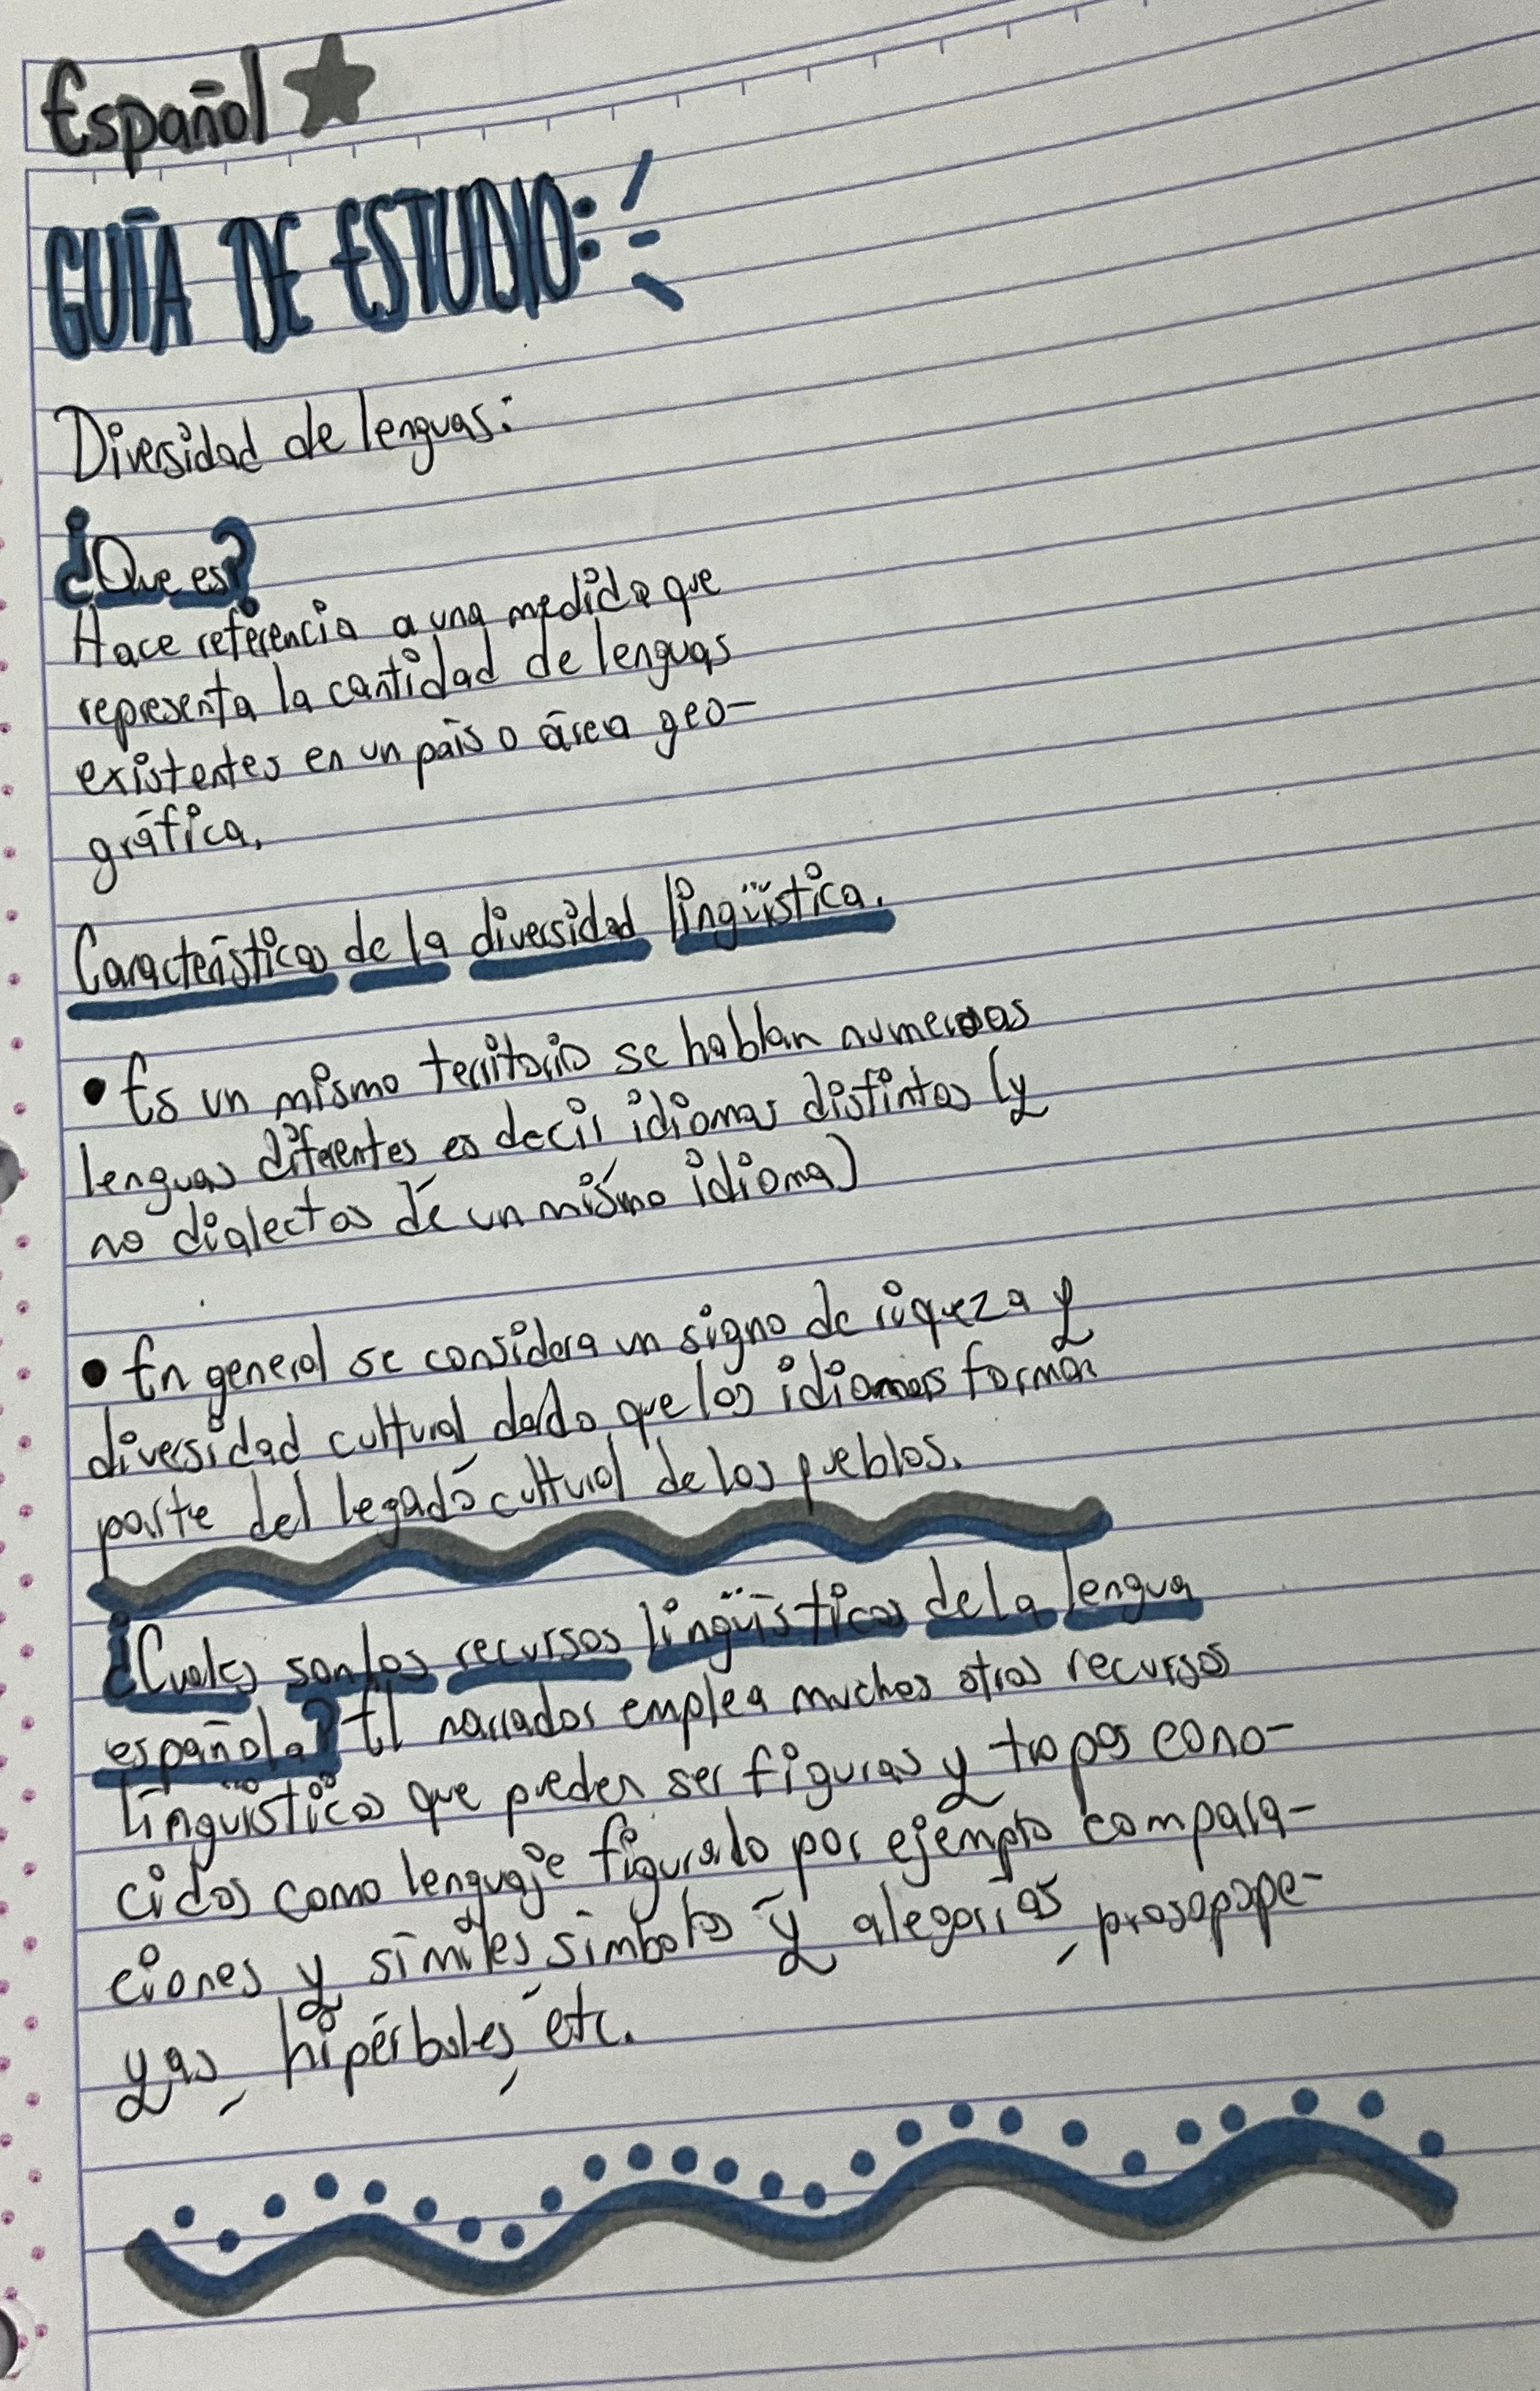 Español
GUÍA DE ESTUDIO:
Diversidad de lenguas:
¿Que es?
Hace referencia a una medida que
representa la cantidad de lenguas
existentes en un país o área geo-
gráfica.
Características de la diversidad lingüística.
• Es un mismo territorio se hablan numerosas
lenguas diferentes, es decir, idiomas distintos (y
no dialectos de un mismo idioma)
• En general se considera un signo de riqueza y
diversidad cultural, dado que los idiomas forman
parte del legado cultural de los pueblos.
¿Cuales son los recursos lingüísticos de la lengua
española? El narrador emplea muchos otros recursos
lingüísticos que pueden ser figuras y tropos cono-
cidos como lenguaje figurado por ejemplo compara-
ciones y símiles, símbolos y alegorías, prosopope-
yas, hipérboles, etc.